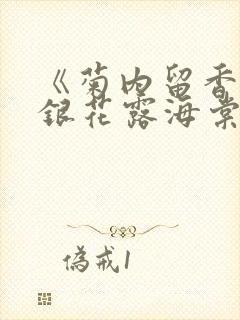 《菊内留香
銀花露海棠
偽戒1